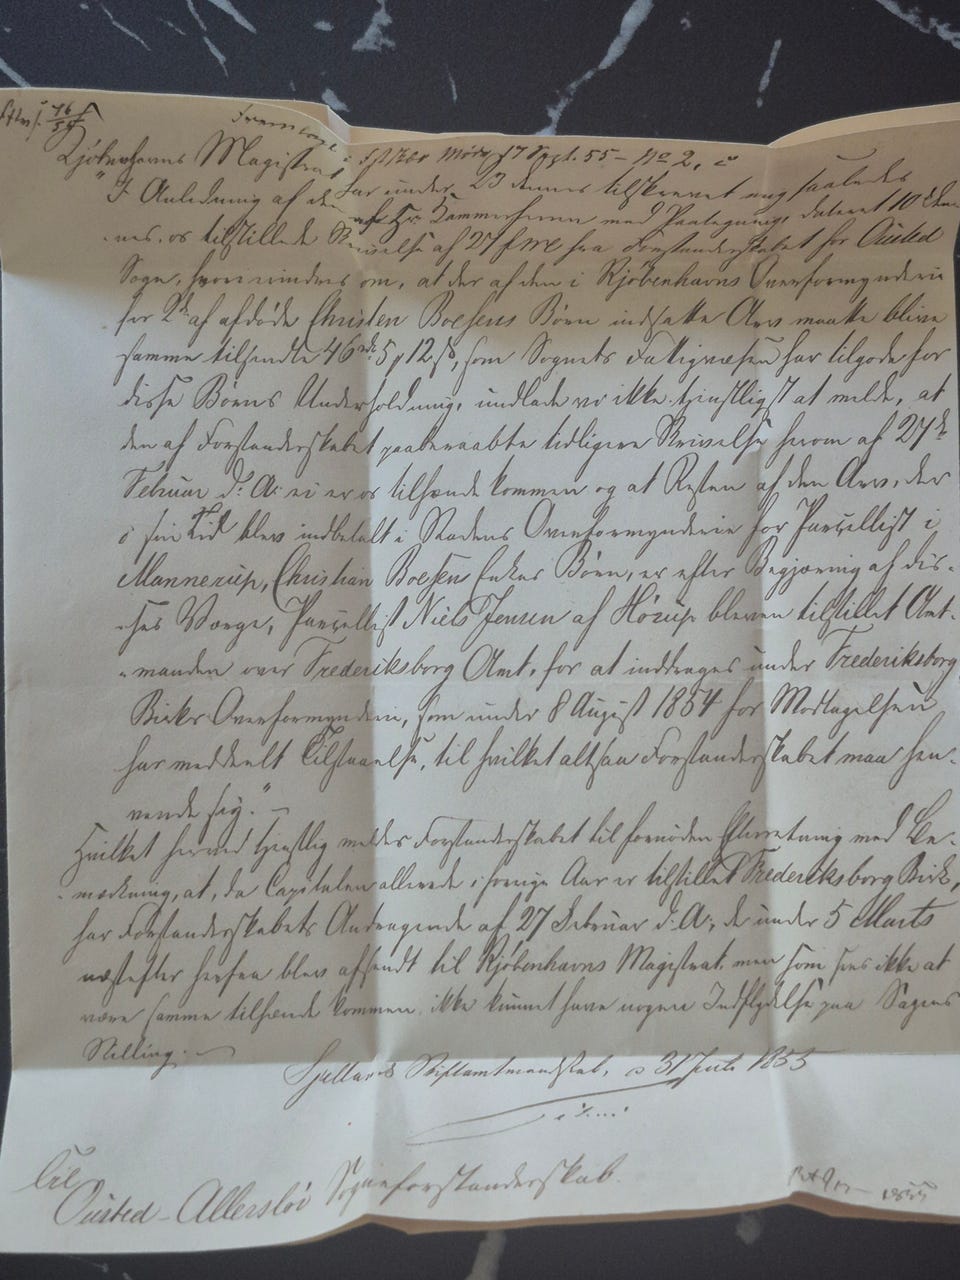 Kjøbenhavns Magistrat har under 23 dennes tilskrevet mig saaledes
"I Anledning af den af Hr. Kammerherren med Paategning, dateret 10 den-
nes, os tilstillede Skrivelse af 27 f. M. fra Forstanderskabet for Ousted
Sogn, hvori mindes om, at der af den i Kjøbenhavns Overformynderie
for 2de af afdøde Christen Boesens Børn indsatte Arv maatte blive
samme tilsendte 46 rd 5 # 12 s, som Sognets Fattigvæsen har tilgode for
disse Børns Underholdning, undlade vi ikke tjenstligst at melde, at
den af Forstanderskabet paaberaabte tidligere Skrivelse herom af 27de
Februar d: A: ei er os tilhænde kommen og at Resten af den Arv, der
i sin Tid blev indbetalt i Stadens Overformynderie for Parcellist i
Mannerup, Christian Boesens Enkes Børn, er efter Begjæring af dis-
ses Værge, Parcellist Niels Jensen af Hørup bleven tilstillet Amt-
manden over Frederiksborg Amt, for at inddrages under Frederiksborg
Birks Overformynderie, som under 8 August 1854 for Modtagelsen
har meddeelt Tilstaaelse, til hvilket altsaa Forstanderskabet maa hen-
vende sig." —
Hvilket herved tjenstlig meldes Forstanderskabet til fornøden Efterretning med Be-
mærkning, at, da Capitalen allerede i forrige Aar er tilstillet Frederiksborg Birk,
har Forstanderskabets Andragende af 27 Februar d: A:, de under 5 Marts
næstefter herfra blev afsendt til Kjøbenhavns Magistrat, men som sees ikke at
være samme tilhænde kommen, ikke kunnet have nogen Indflydelse paa Sagens
Stilling. —
Sjellands Stiftamtmandskab, d 31 Juli 1855
Til
Ousted-Allersløv Sogneforstanderskab.